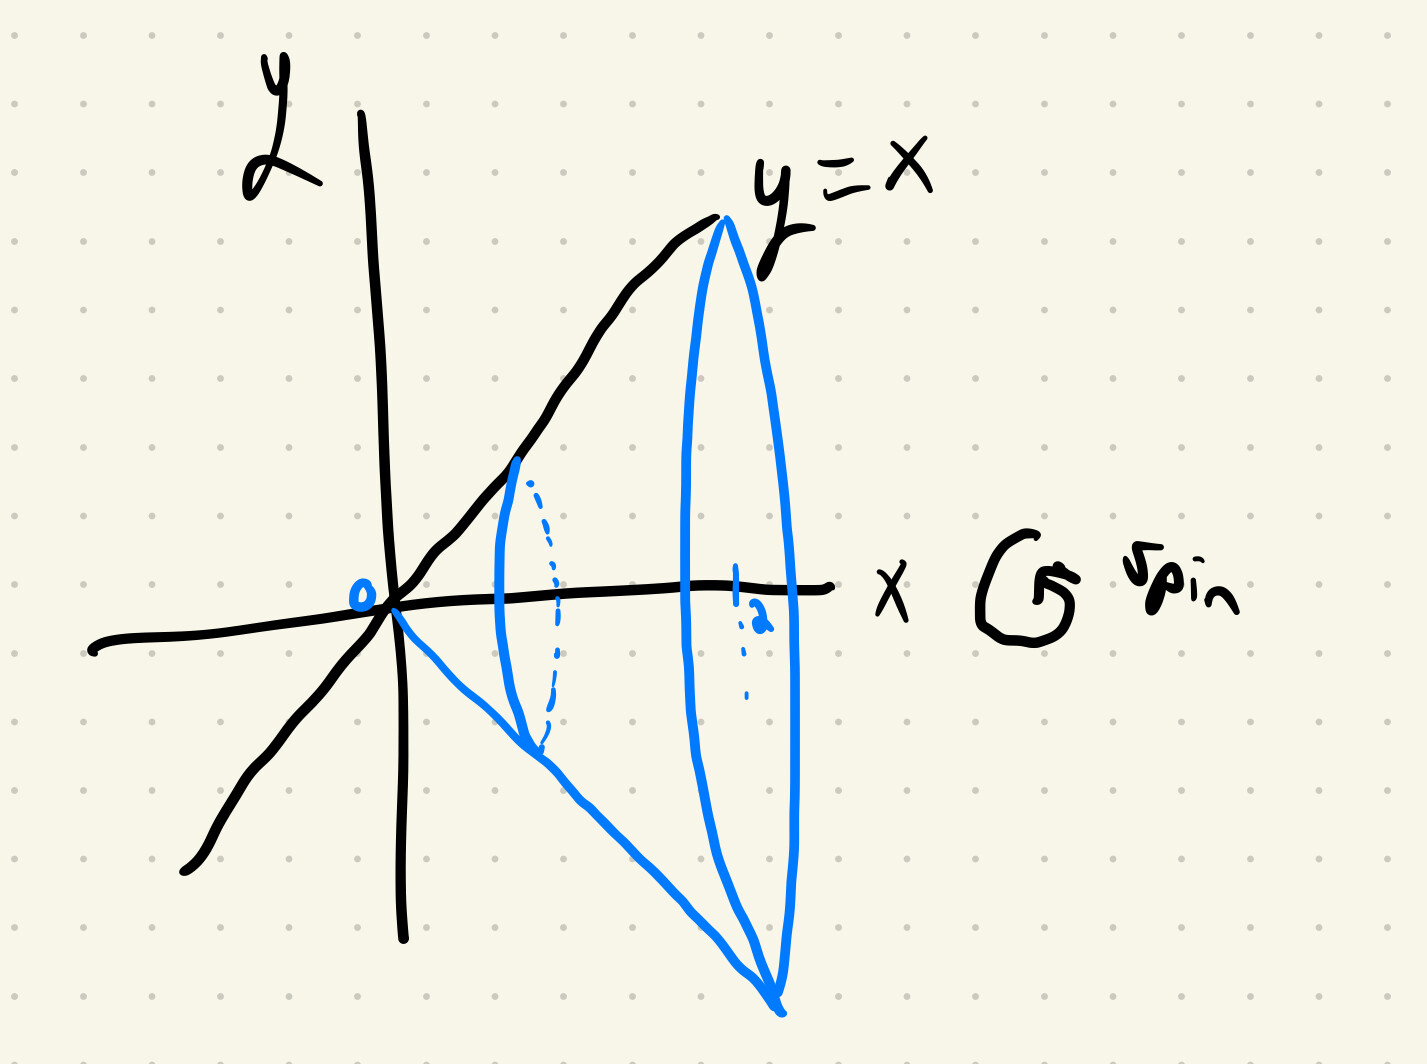 y
y = x
0
x
spin